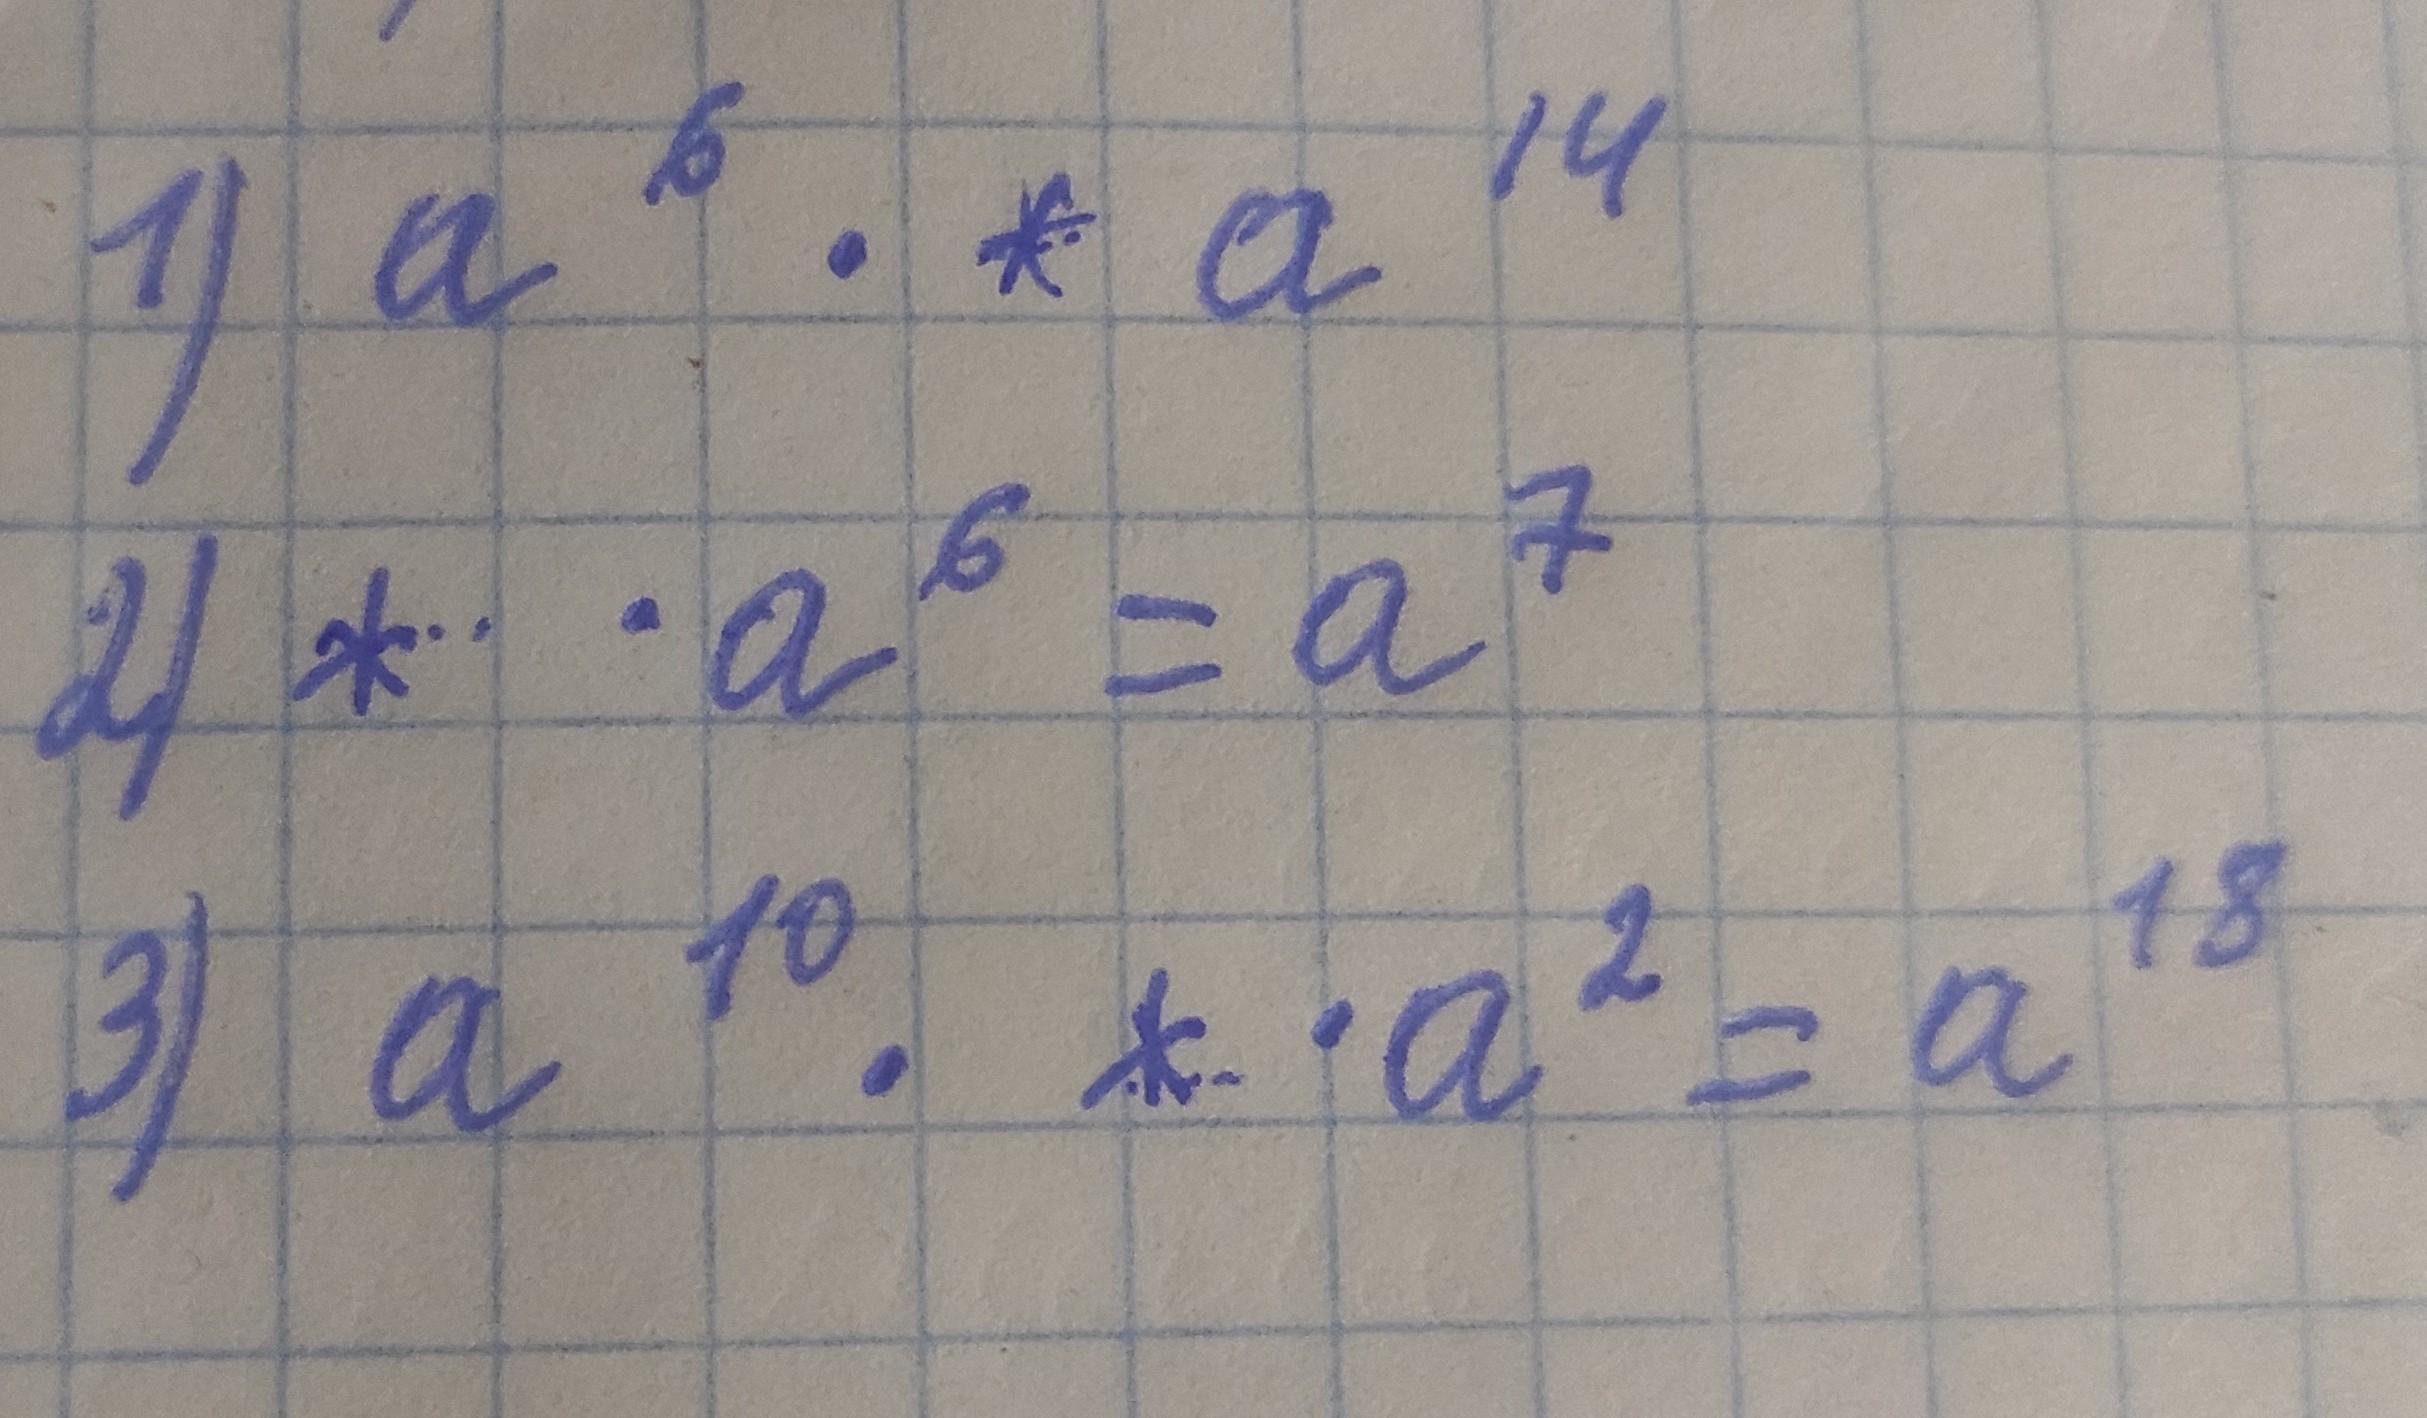 1) a⁶ · * a¹⁴
2) * · a⁶ = a⁷
3) a¹⁰ · * · a² = a¹⁸